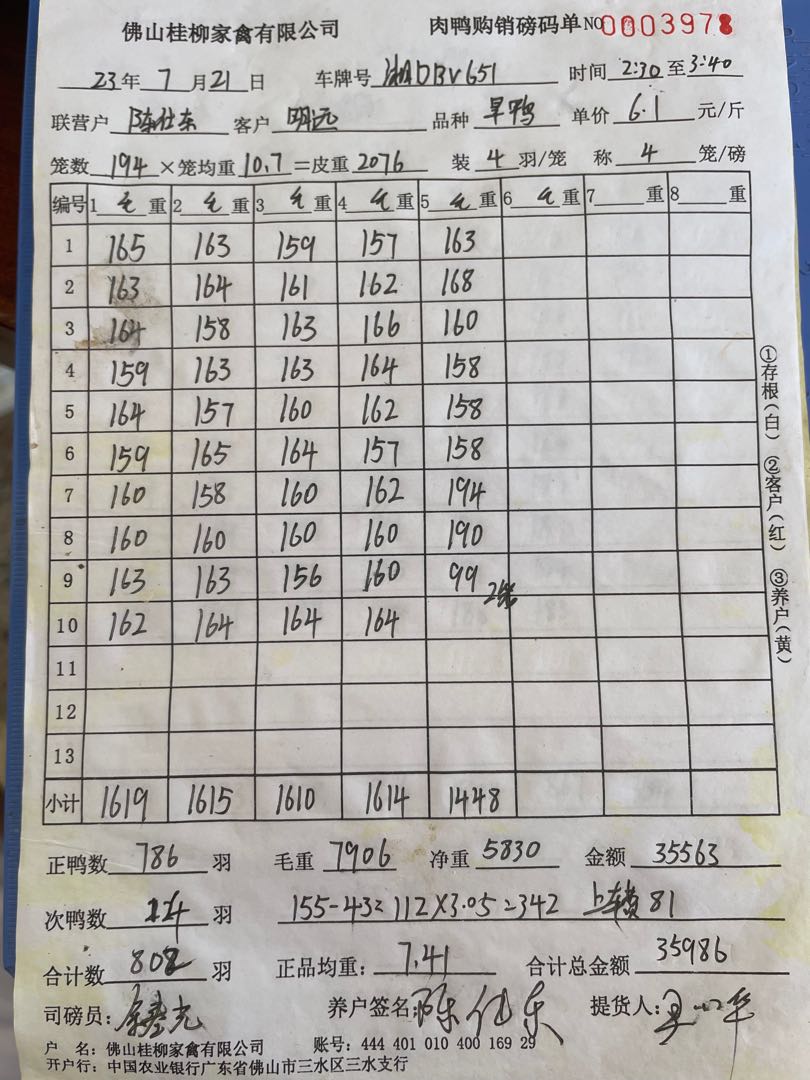 佛山桂柳家禽有限公司 肉鸭购销磅码单 NO 0003978
23年 7月21日 车牌号 湘DBV651 时间 2:30 至 3:40
联营户 陈仕东 客户 明远 品种 旱鸭 单价 6.1 元/斤
笼数 194 ×笼均重 10.7 =皮重 2076 装 4 羽/笼 称 4 笼/磅
编号 1 毛 重 2 毛 重 3 毛 重 4 毛 重 5 毛 重 6 毛 重 7 重 8 重
1 165 163 159 157 163
2 163 164 161 162 168
3 164 158 163 166 160
4 159 163 163 164 158
5 164 157 160 162 158
6 159 165 164 157 158
7 160 158 160 162 194
8 160 160 160 160 190
9 163 163 156 160 99
10 162 164 164 164
11
12
13
小计 1619 1615 1610 1614 1448
正鸭数 786 羽 毛重 7906 净重 5830 金额 35563
次鸭数 羽 155-43=112×3.05=342 81
合计数 802 羽 正品均重: 7.41 合计总金额 35986
司磅员: 养户签名: 陈仕东 提货人:
户 名: 佛山桂柳家禽有限公司 账号: 444 401 010 400 169 29
开户行: 中国农业银行广东省佛山市三水区三水支行
①存根(白) ②客户(红) ③养户(黄)